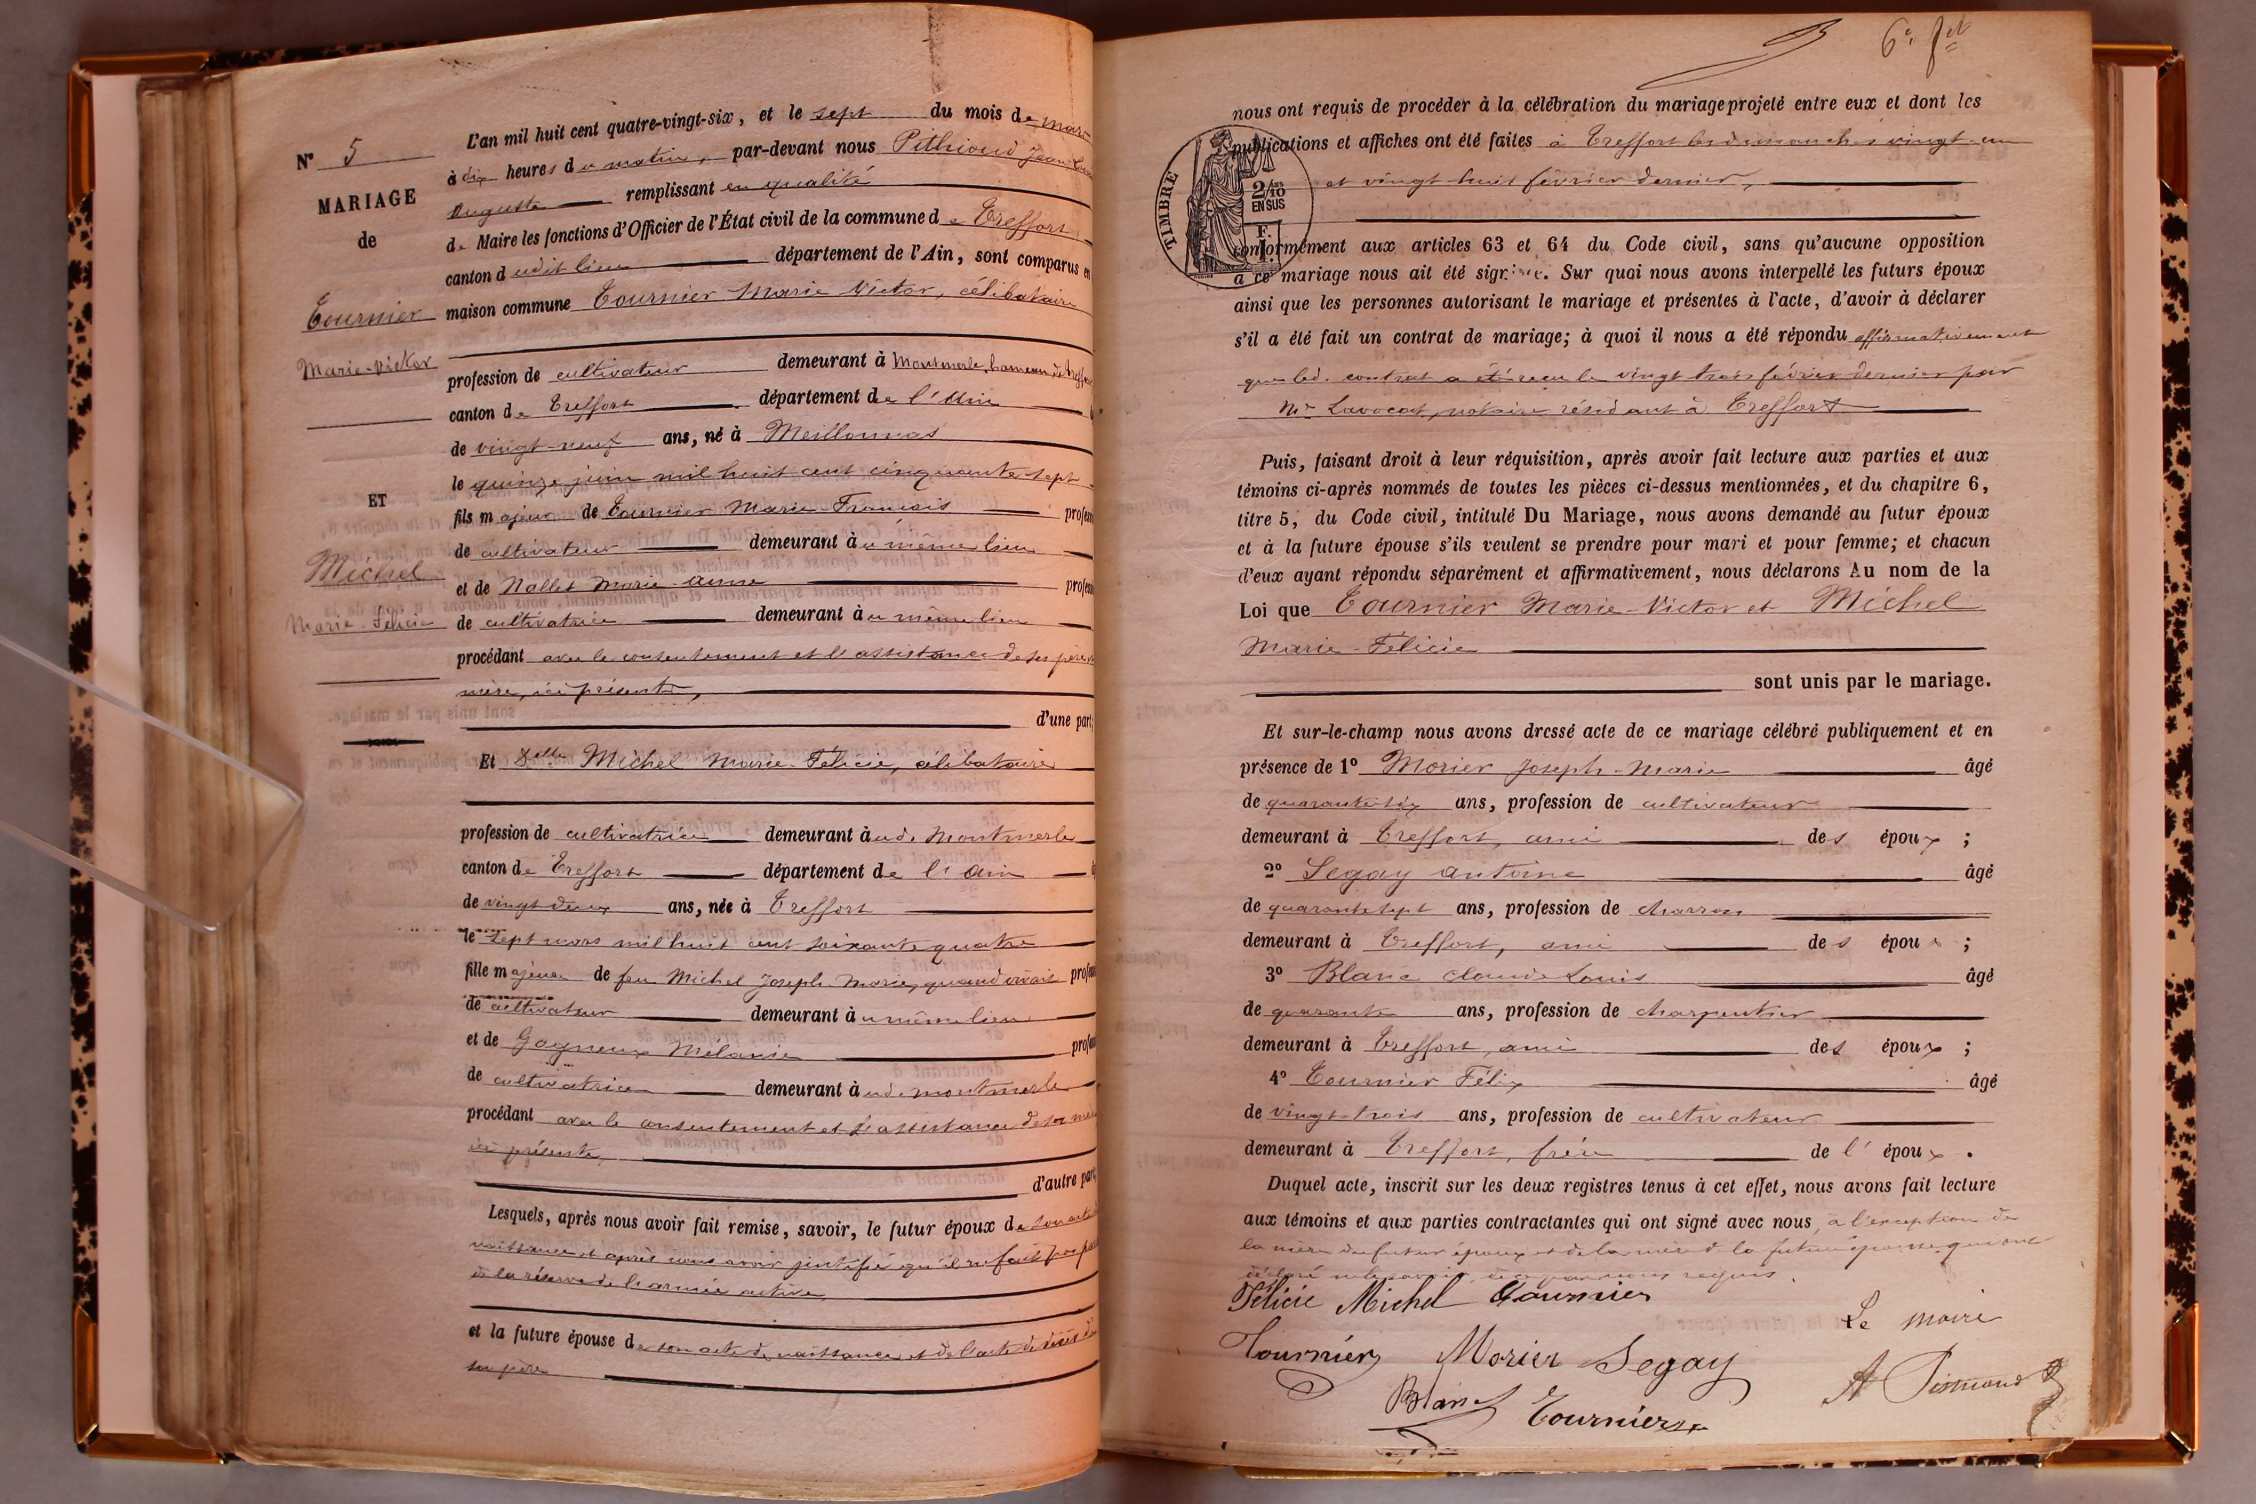 N° 5
MARIAGE
de
Tournier
Marie-Victor
ET
Michel
Marie-Félicie
L'an mil huit cent quatre-vingt-six, et le sept du mois de mars
à dix heures du matin, par-devant nous Pithioud Jean
Auguste remplissant en qualité
de Maire les fonctions d'Officier de l'État civil de la commune de Treffort
canton dudit lieu département de l'Ain, sont comparus en
maison commune Tournier Marie Victor, célibataire
profession de cultivateur demeurant à Montmerle, hameau de Treffort
canton de Treffort département de l'Ain
de vingt-neuf ans, né à Meillonnas
le quinze juin mil huit cent cinquante-sept
fils majeur de Tournier Marie François profess
de cultivateur demeurant au même lieu
et de Nallet Marie-Anne profess
de cultivatrice demeurant au même lieu
procédant avec le consentement et l'assistance de ses père et
mère, ici présents,
d'une part;
Et Delle Michel Marie-Félicie, célibataire
profession de cultivatrice demeurant aud. Montmerle
canton de Treffort département de l'Ain
de vingt-deux ans, née à Treffort
le sept mars mil huit cent soixante quatre
fille majeure de feu Michel Joseph Marie, quand vivait profess
de cultivateur demeurant au même lieu
et de Gagneux Mélanie profess
de cultivatrice demeurant aud. Montmerle
procédant avec le consentement et l'assistance de sa mère
ici présente,
d'autre part,
Lesquels, après nous avoir fait remise, savoir, le futur époux de son acte de
naissance et après nous avoir justifié qu'il ne fait pas partie
de la réserve de l'armée active,
et la future épouse de son acte de naissance et de l'acte de décès de
son père
6e
nous ont requis de procéder à la célébration du mariage projeté entre eux et dont les
publications et affiches ont été faites à Treffort les dimanches vingt-un
et vingt-huit février dernier,
TIMBRE
2/10 EN SUS
F.
1
conformément aux articles 63 et 64 du Code civil, sans qu'aucune opposition
à ce mariage nous ait été signifiée. Sur quoi nous avons interpellé les futurs époux
ainsi que les personnes autorisant le mariage et présentes à l'acte, d'avoir à déclarer
s'il a été fait un contrat de mariage; à quoi il nous a été répondu affirmativement
que led. contrat a été reçu le vingt trois février dernier par
Me Lavocat, notaire résidant à Treffort
Puis, faisant droit à leur réquisition, après avoir fait lecture aux parties et aux
témoins ci-après nommés de toutes les pièces ci-dessus mentionnées, et du chapitre 6,
titre 5, du Code civil, intitulé Du Mariage, nous avons demandé au futur époux
et à la future épouse s'ils veulent se prendre pour mari et pour femme; et chacun
d'eux ayant répondu séparément et affirmativement, nous déclarons Au nom de la
Loi que Tournier Marie-Victor et Michel
Marie-Félicie
sont unis par le mariage.
Et sur-le-champ nous avons dressé acte de ce mariage célébré publiquement et en
présence de 1° Morier Joseph-Marie âgé
de quarante-six ans, profession de cultivateur
demeurant à Treffort, ami des époux;
2° Segay Antoine âgé
de quarante-sept ans, profession de charron
demeurant à Treffort, ami des époux;
3° Blanc Claude Louis âgé
de quarante ans, profession de charpentier
demeurant à Treffort, ami des époux;
4° Tournier Félix âgé
de vingt-trois ans, profession de cultivateur
demeurant à Treffort, frère de l'époux.
Duquel acte, inscrit sur les deux registres tenus à cet effet, nous avons fait lecture
aux témoins et aux parties contractantes qui ont signé avec nous à l'exception de
la mère du futur époux et de la mère de la future épouse, qui ont
déclaré ne le savoir, de ce par nous requis.
Félicie Michel Tournier
Le maire
Tournier Morier Segay
A Pithioud
Blanc Tournier